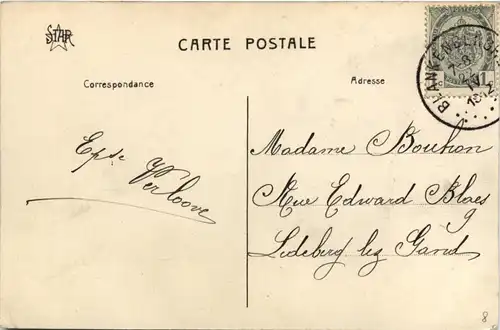 STAR
CARTE POSTALE
Correspondance
Adresse
BLANKENBERGHE
1912
Expr Verloove
Madame Bouhon
Rue Edward Blaes
9
Ledeberg lez Gand
8